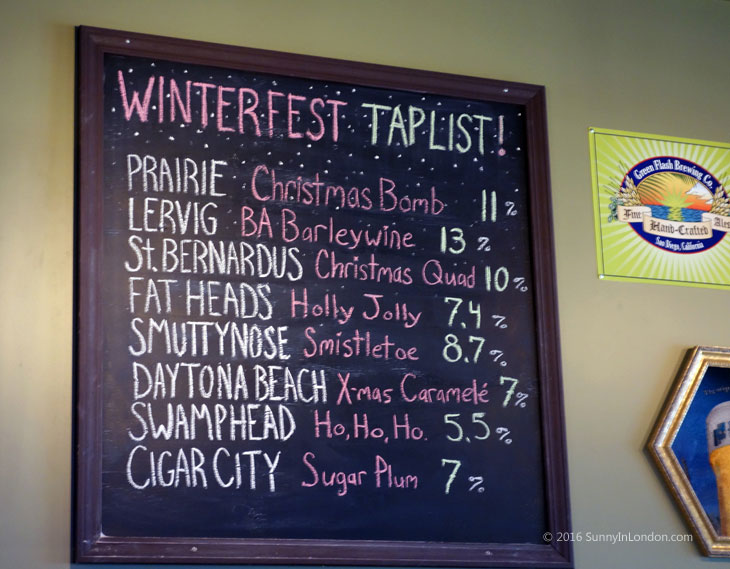 WINTERFEST TAPLIST!
PRAIRIE Christmas Bomb 11%
LERVIG BA Barleywine 13%
St. BERNARDUS Christmas Quad 10%
FAT HEADS Holly Jolly 7.4%
SMUTTYNOSE Smistletoe 8.7%
DAYTONA BEACH X-mas Caramelé 7%
SWAMPHEAD Ho, Ho, Ho. 5.5%
CIGAR CITY Sugar Plum 7%
Green Flash Brewing Co.
Fine Hand-Crafted Ales
San Diego, California
© 2016 SunnyInLondon.com